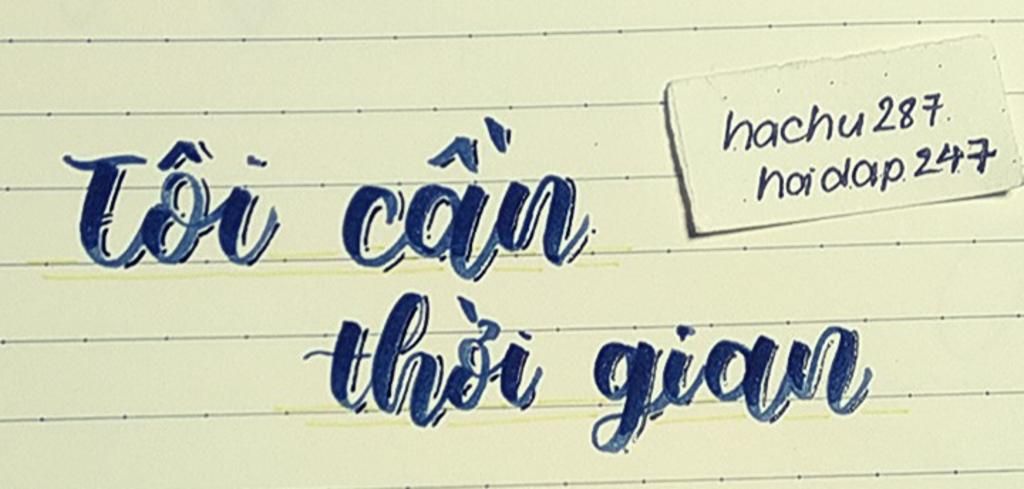 Tôi cần
thời gian
hachu287.
hoidap.247